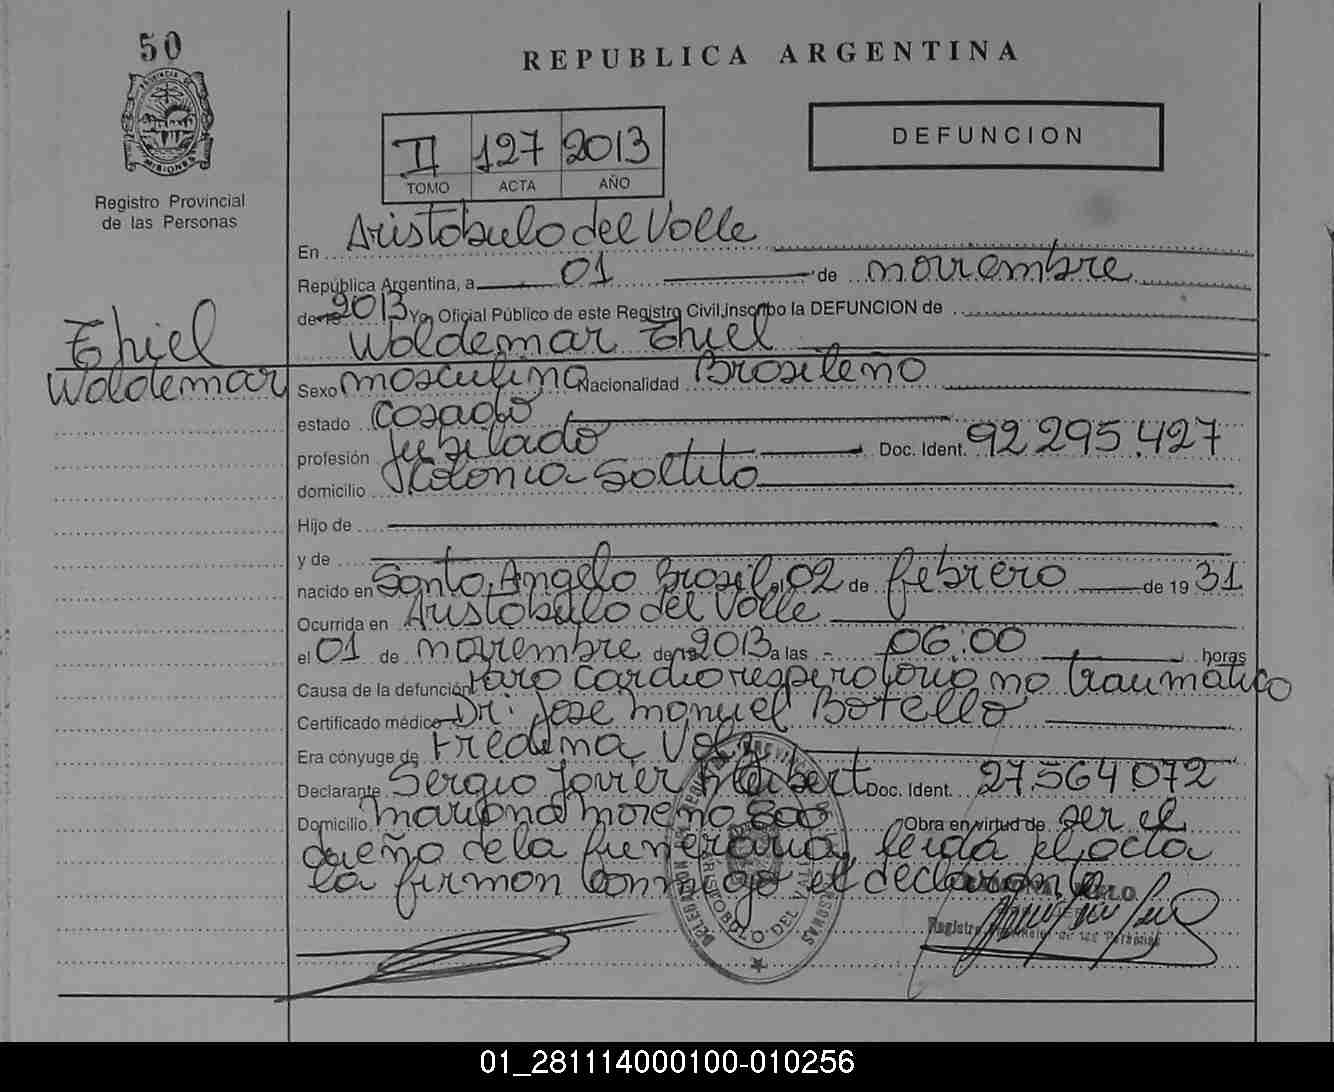 50
REPUBLICA ARGENTINA
PROVINCIA DE
MISIONES
Registro Provincial
de las Personas
II 127 2013
TOMO ACTA AÑO
DEFUNCION
En Aristobulo del Valle
República Argentina, a 01 de noviembre
de 19 2013 Yo, Oficial Público de este Registro Civil, inscribo la DEFUNCION de
Thiel
Waldemar
Waldemar Thiel
Sexo masculino Nacionalidad Brasileño
estado casado
profesión Jubilado Doc. Ident. 92295.427
domicilio Colonia Saltito
Hijo de
y de
nacido en Santo Angelo Brasil el 02 de febrero de 19 31
Ocurrida en Aristobulo del Valle
el 01 de noviembre de 19 2013 a las 06:00 horas
Causa de la defunción Paro Cardiorespiratorio no traumático
Certificado médico Dr: Jose Manuel Botello
Era cónyuge de Fredima
Declarante Sergio Javier Doc. Ident. 27564072
Domicilio Mariano Moreno 800 Obra en virtud de ser el
dueño de la funeraria, leida el acta
la firman conmigo el declarante
Registro Provincial de las Personas
01_281114000100-010256